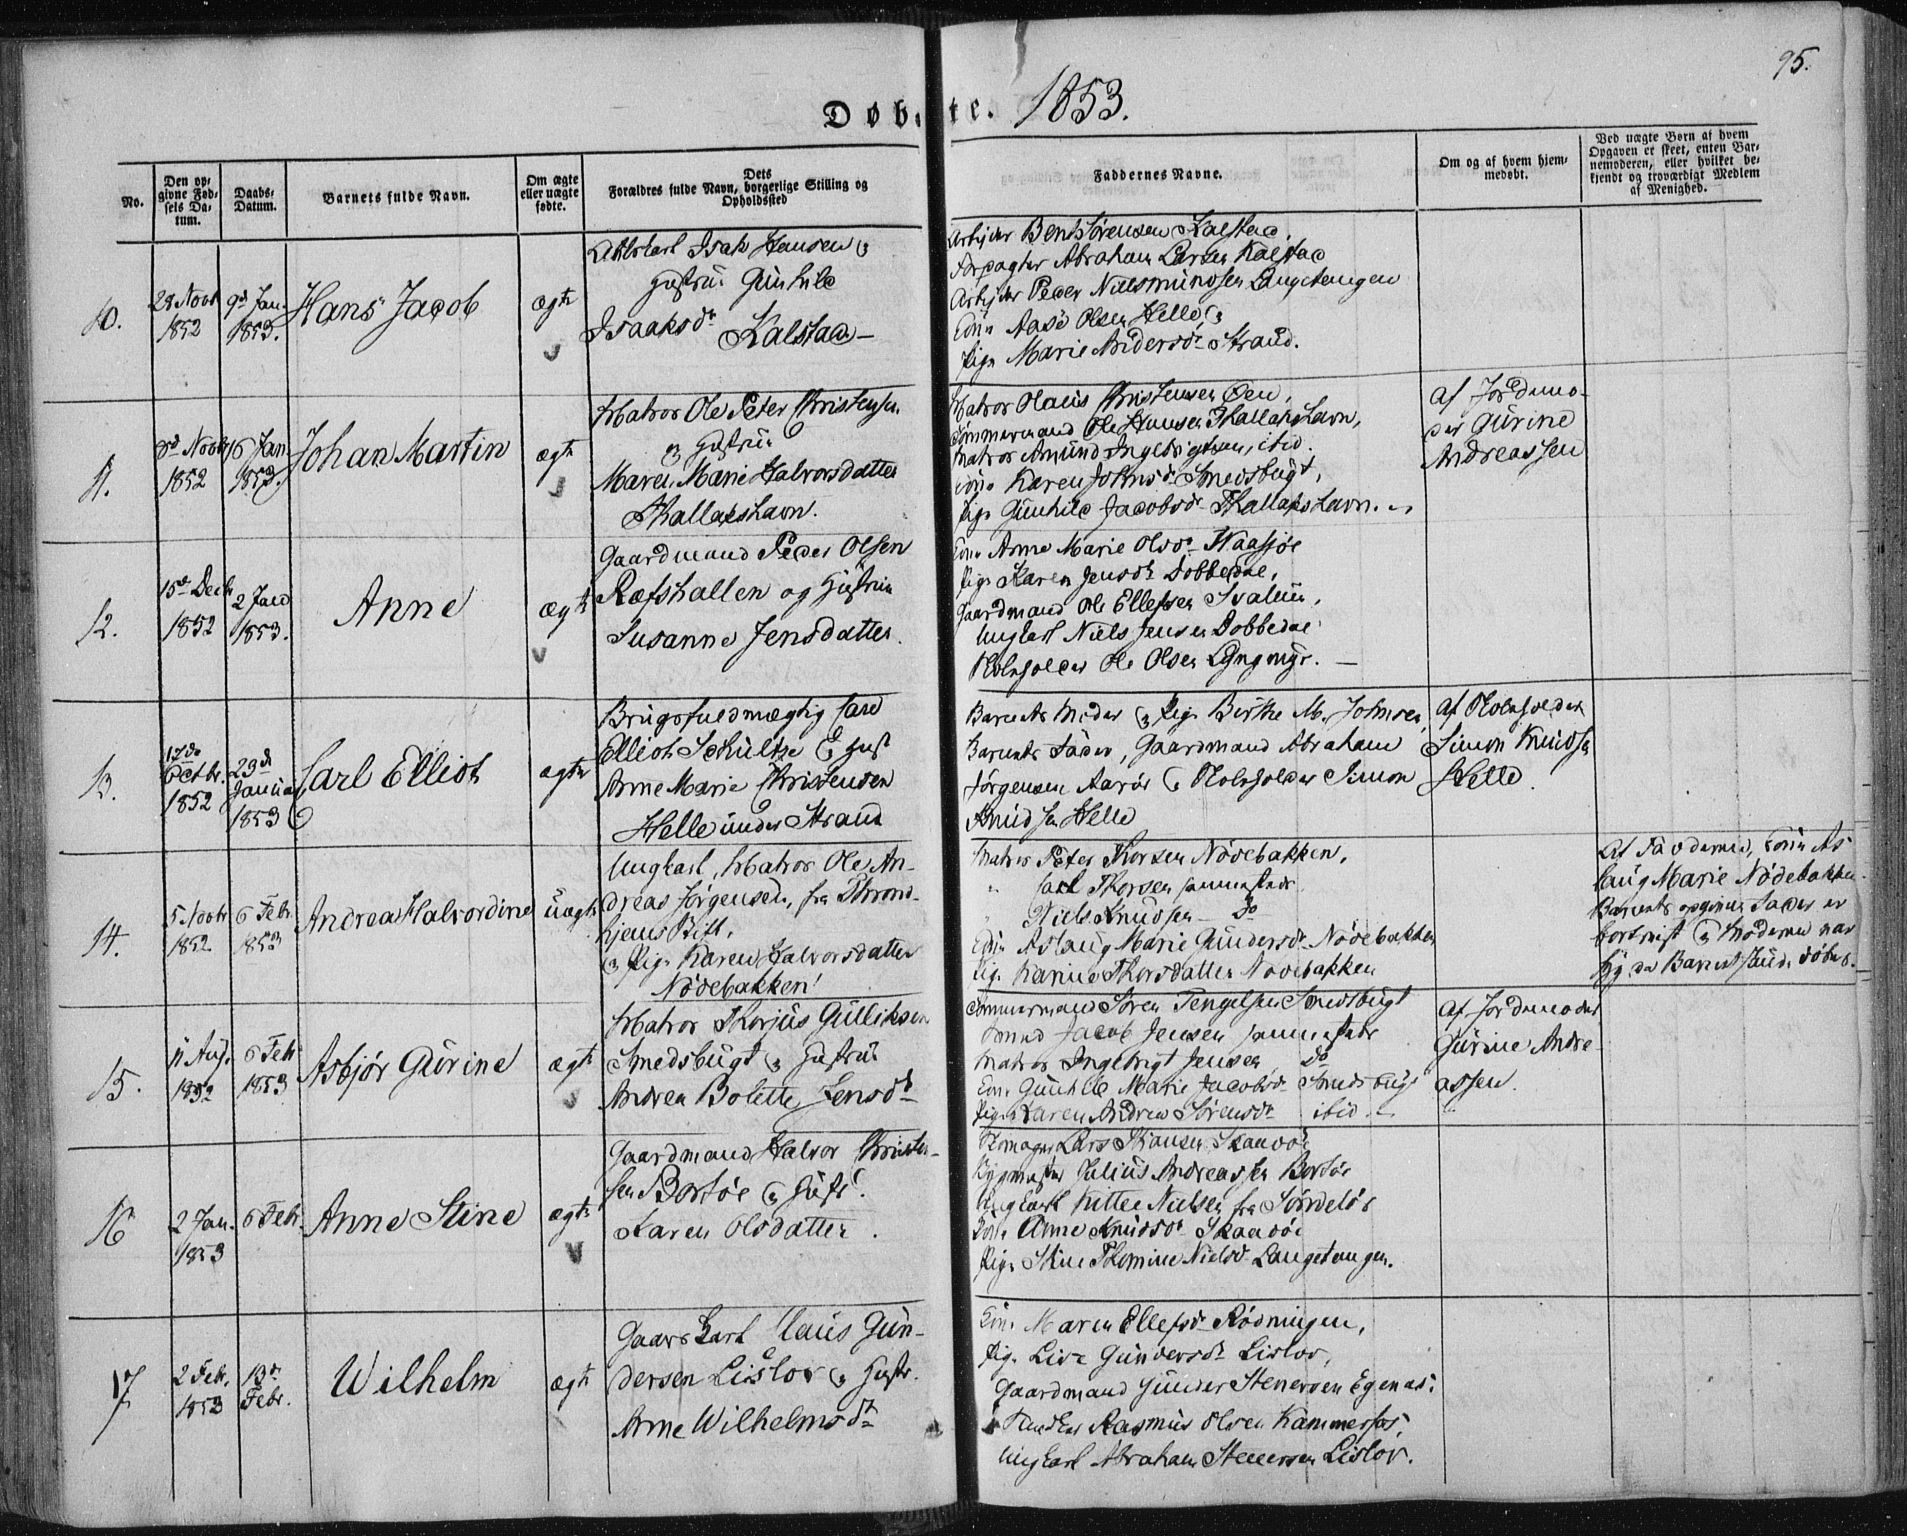 95.
Døbte. 1853.
No.
Den opgivne Fødsels Datum.
Daabs-Datum.
Barnets fulde Navn.
Om ægte eller uægte fødte.
Dets Forældres fulde Navn, borgerlige Stilling og Opholdssted
Faddernes Navne.
Om og af hvem hjemmedøbt.
Ved uægte Børn af hvem Opgaven er skeet, enten Barnemoderen, eller hvilket bekjendt og troværdigt Medlem af Menighed.
10.
1852
9d Jan. 1853.
Hans Jacob
ægte
Isak Hansen og
Hustru Gunhild
Isaaksdr Kalstad
Arbejder Bent Sørensen Kalstad.
Forpagter Abraham Larsen Kalstad
Arbejder Peder Nielsmundsen Langetangen
Kone Aase Olsen Helle og
Pige Marie Andersdr Strand.
11.
Novbr 1852
16 Jan 1853.
Johan Martin
ægte
Matros Ole Peter Christensen
og Hustru
Maren Marie Halvorsdatter
Thallakshavn.
Matros Olaus Christensen Øen,
Tømmermand Ole Hansen Thallakshavn,
Matros Amund Ingebrigtsen, ibid.
Kone Karen Johnsdr Smedsbugt,
Pige Gunhild Jacobsdr Thallakshavn.
af Jordemoder
Gurine
Andreassen
12.
15de Decbr 1852
2 Jan 1853.
Anne
ægte
Gaardmand Peder Olsen
Ræfshallen og Hustru
Susanne Jensdatter.
Kone Anne Marie Olsdr Naasjøe
Pige Karen Jensdr Dobbedal,
Gaardmand Ole Ellefsen
Ungkarl Niels Jensen Dobbedal
Roligholder Ole Olsen Lyngmyr.
13.
17de Octbr. 1852
23d Januar 1853
Carl Elliot
ægte
Brugsfuldmægtig Carl
Elliot Schultze og Hust
Anne Marie Christensen
Helle under Strand
Barnets Moder og Pige Birthe M. Johnsen,
Barnets Fader, Gaardmand Abraham
Jørgensen Aarøe og Simon
Knudsen Helle
Af
Simon Knudsen
Helle.
14.
5 Novbr 1852
6 Febr. 1853
Andrea Halvordine
uægte
Ungkarl, Matros Ole Andreas
Jørgensen, fra Thrond-
hjems Stift,
og Pige Karen Halvorsdatter
Nødebakken
Matros Peter Thorsen Nødebakken,
" Carl Thorsen sammestads
" Niels Knudsen Do
Kone Aslaug Marie Gundersdr Nødebakken
Pige Karine Thorsdatter Nødebakken
Af Fadderne, Kone As-
laug Marie Nødebakken.
Barnets opgivne Fader er
bortreist og Moderen var
syg da Barnet skulde døbes.
15.
11 Aug. 1852
6 Febr 1853
Asbjør Gurine
ægte
Matros Thorjus Gulliksen
Smedsbugt og Hustru
Andrea Bolette Jensdr
Tømmermand Søren Tengelsen Smedsbugt
Jacob Jensen sammestads
Matros Ingebrigt Jensen Do
Kone Gunhild Marie Jacobsdr Smedsbugt
Pige Karen Andrea Sørensdr ibid.
Af Jordemoder
Gurine Andre-
assen.
16
2 Jan. 1853
6 Febr.
Anne Stine
ægte
Gaardmand Halvor Christen-
sen Bortøe og Hustr.
Karen Olsdatter.
Lars Hansen Skaadø
Julius Andreassen Bortøe
Ungkarl Kittel Nielsen fra
Kone Anne Knudsdr Skaadøe
Pige Stine Thomine Nielsdr Langetangen.
17
2 Febr. 1853
13de Febr.
Wilhelm
ægte
Claus Gun-
dersen Lislov og Hustr.
Anne Wilhelmsdr
Kone Maren Ellefsdr Rødningen,
Pige Live Gundersdr Lislov,
Gaardmand Gunder Stenersen Egenæs,
Rasmus Olsen Kammerfos,
Ungkarl Abraham Stenersen Lislov.